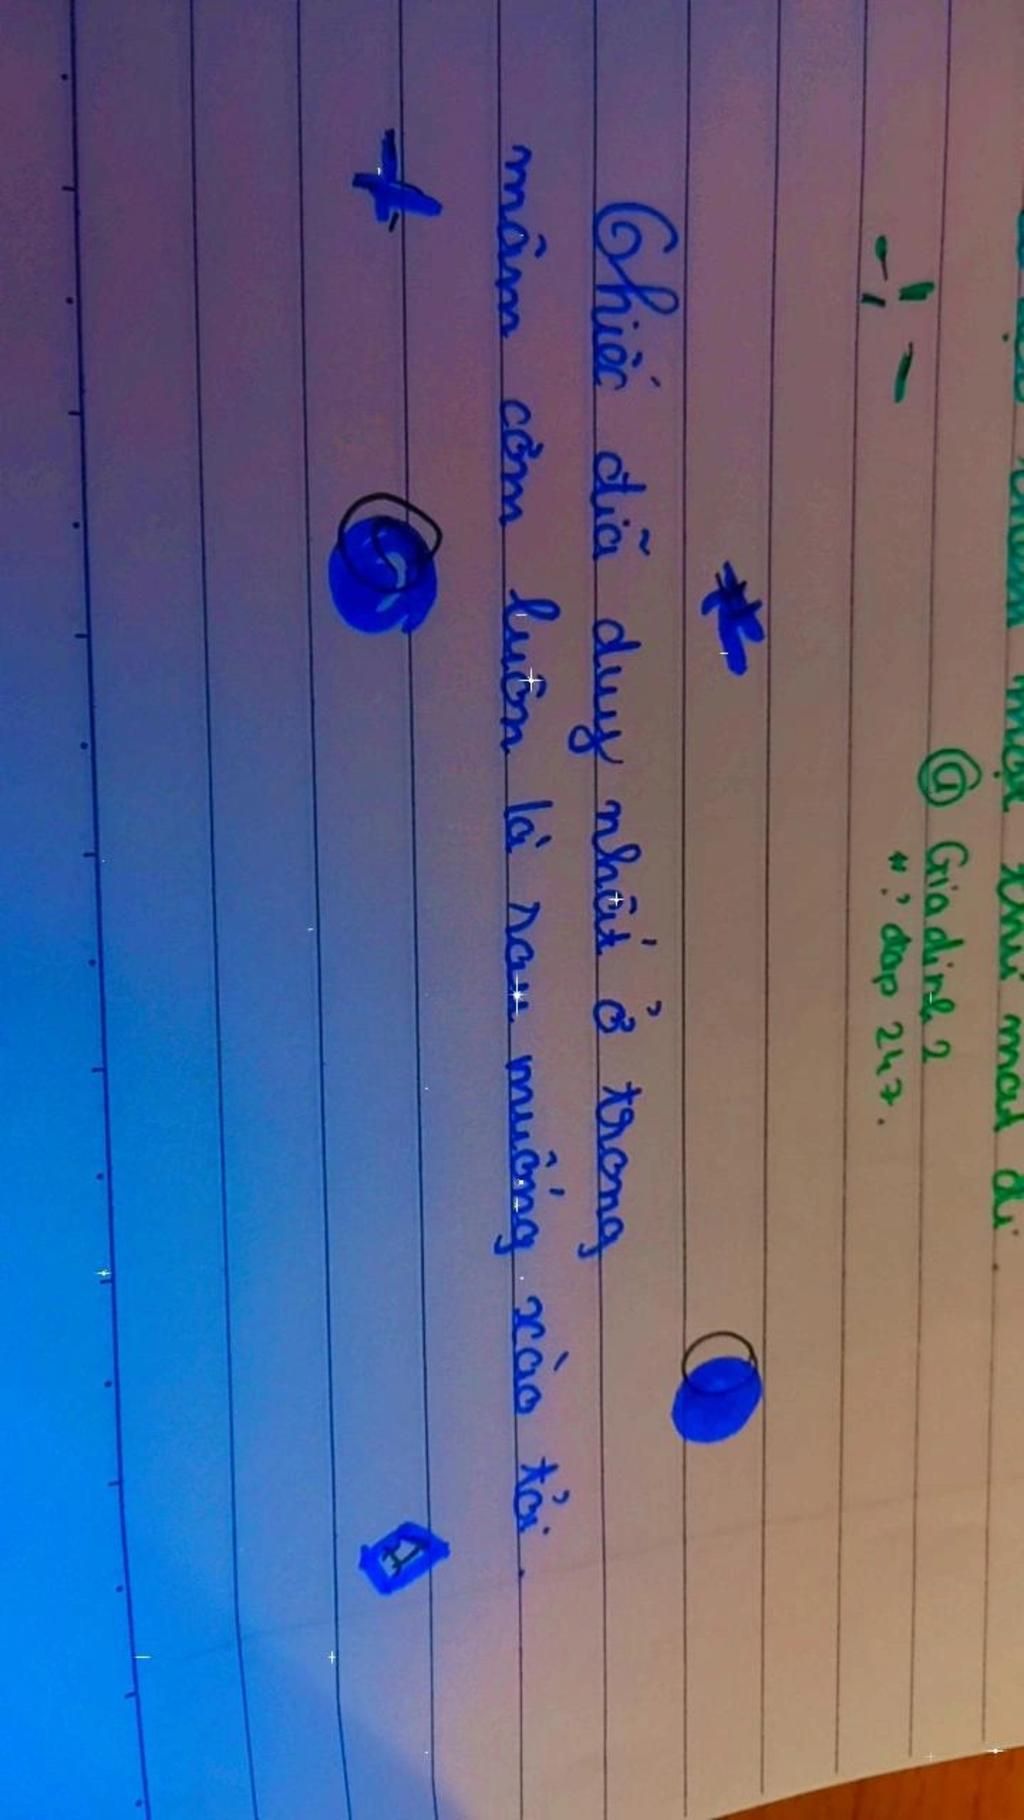 một khi mất đi.
@ Gia đình 2
"? đáp 247.
Chiếc đĩa duy nhất ở trong
mâm cơm luôn là rau muống xào tỏi.